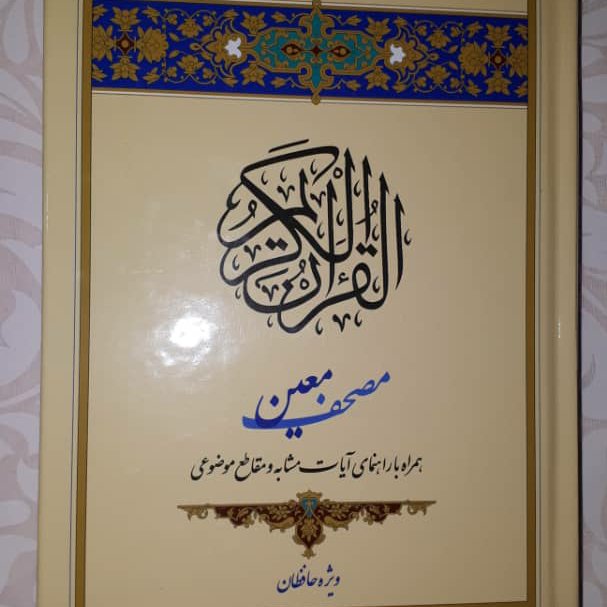 القرآن الكريم
مصحف معین
همراه با راهنمای آیات مشابه و مقاطع موضوعی
ویژه حافظان